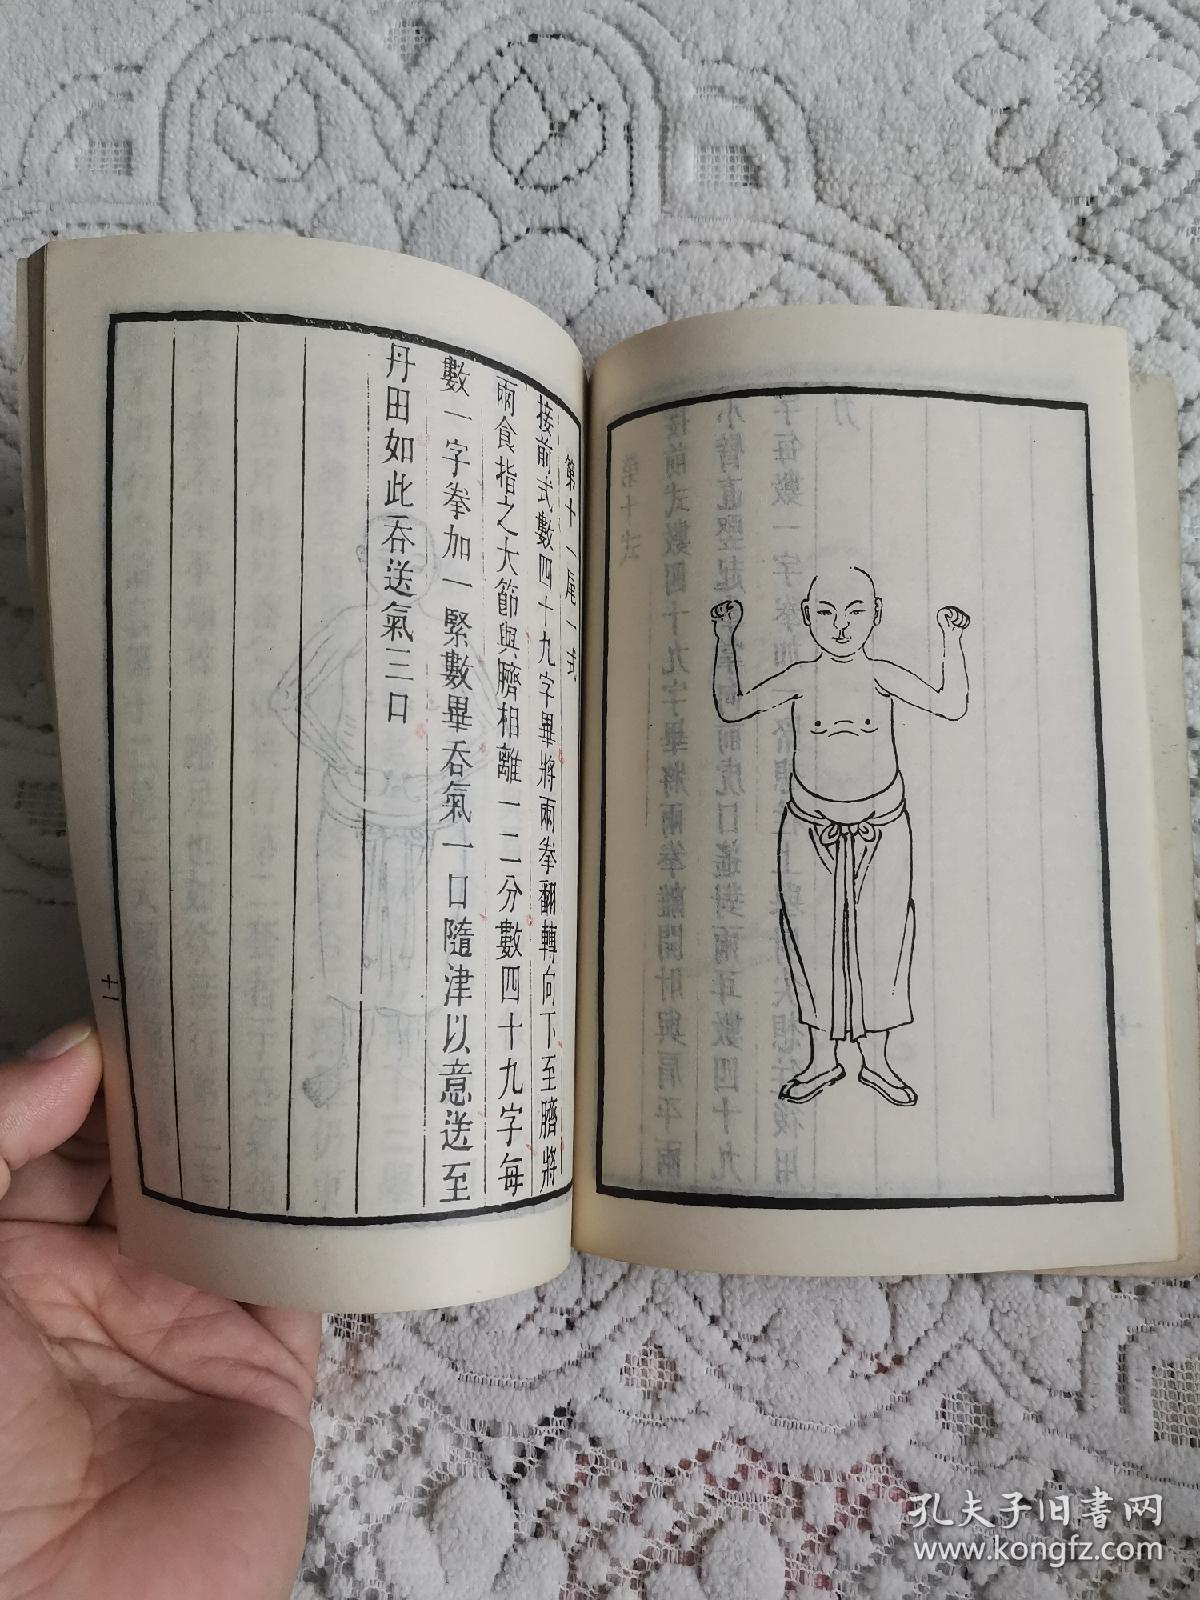 第十一尾一式
接前式數四十九字畢將兩拳翻轉向下至臍將
兩食指之大節與臍相離一二分數四十九字每
數一字拳加一緊數畢吞氣一口隨津以意送至
丹田如此吞送氣三口
十一
孔夫子旧書网
www.kongfz.com